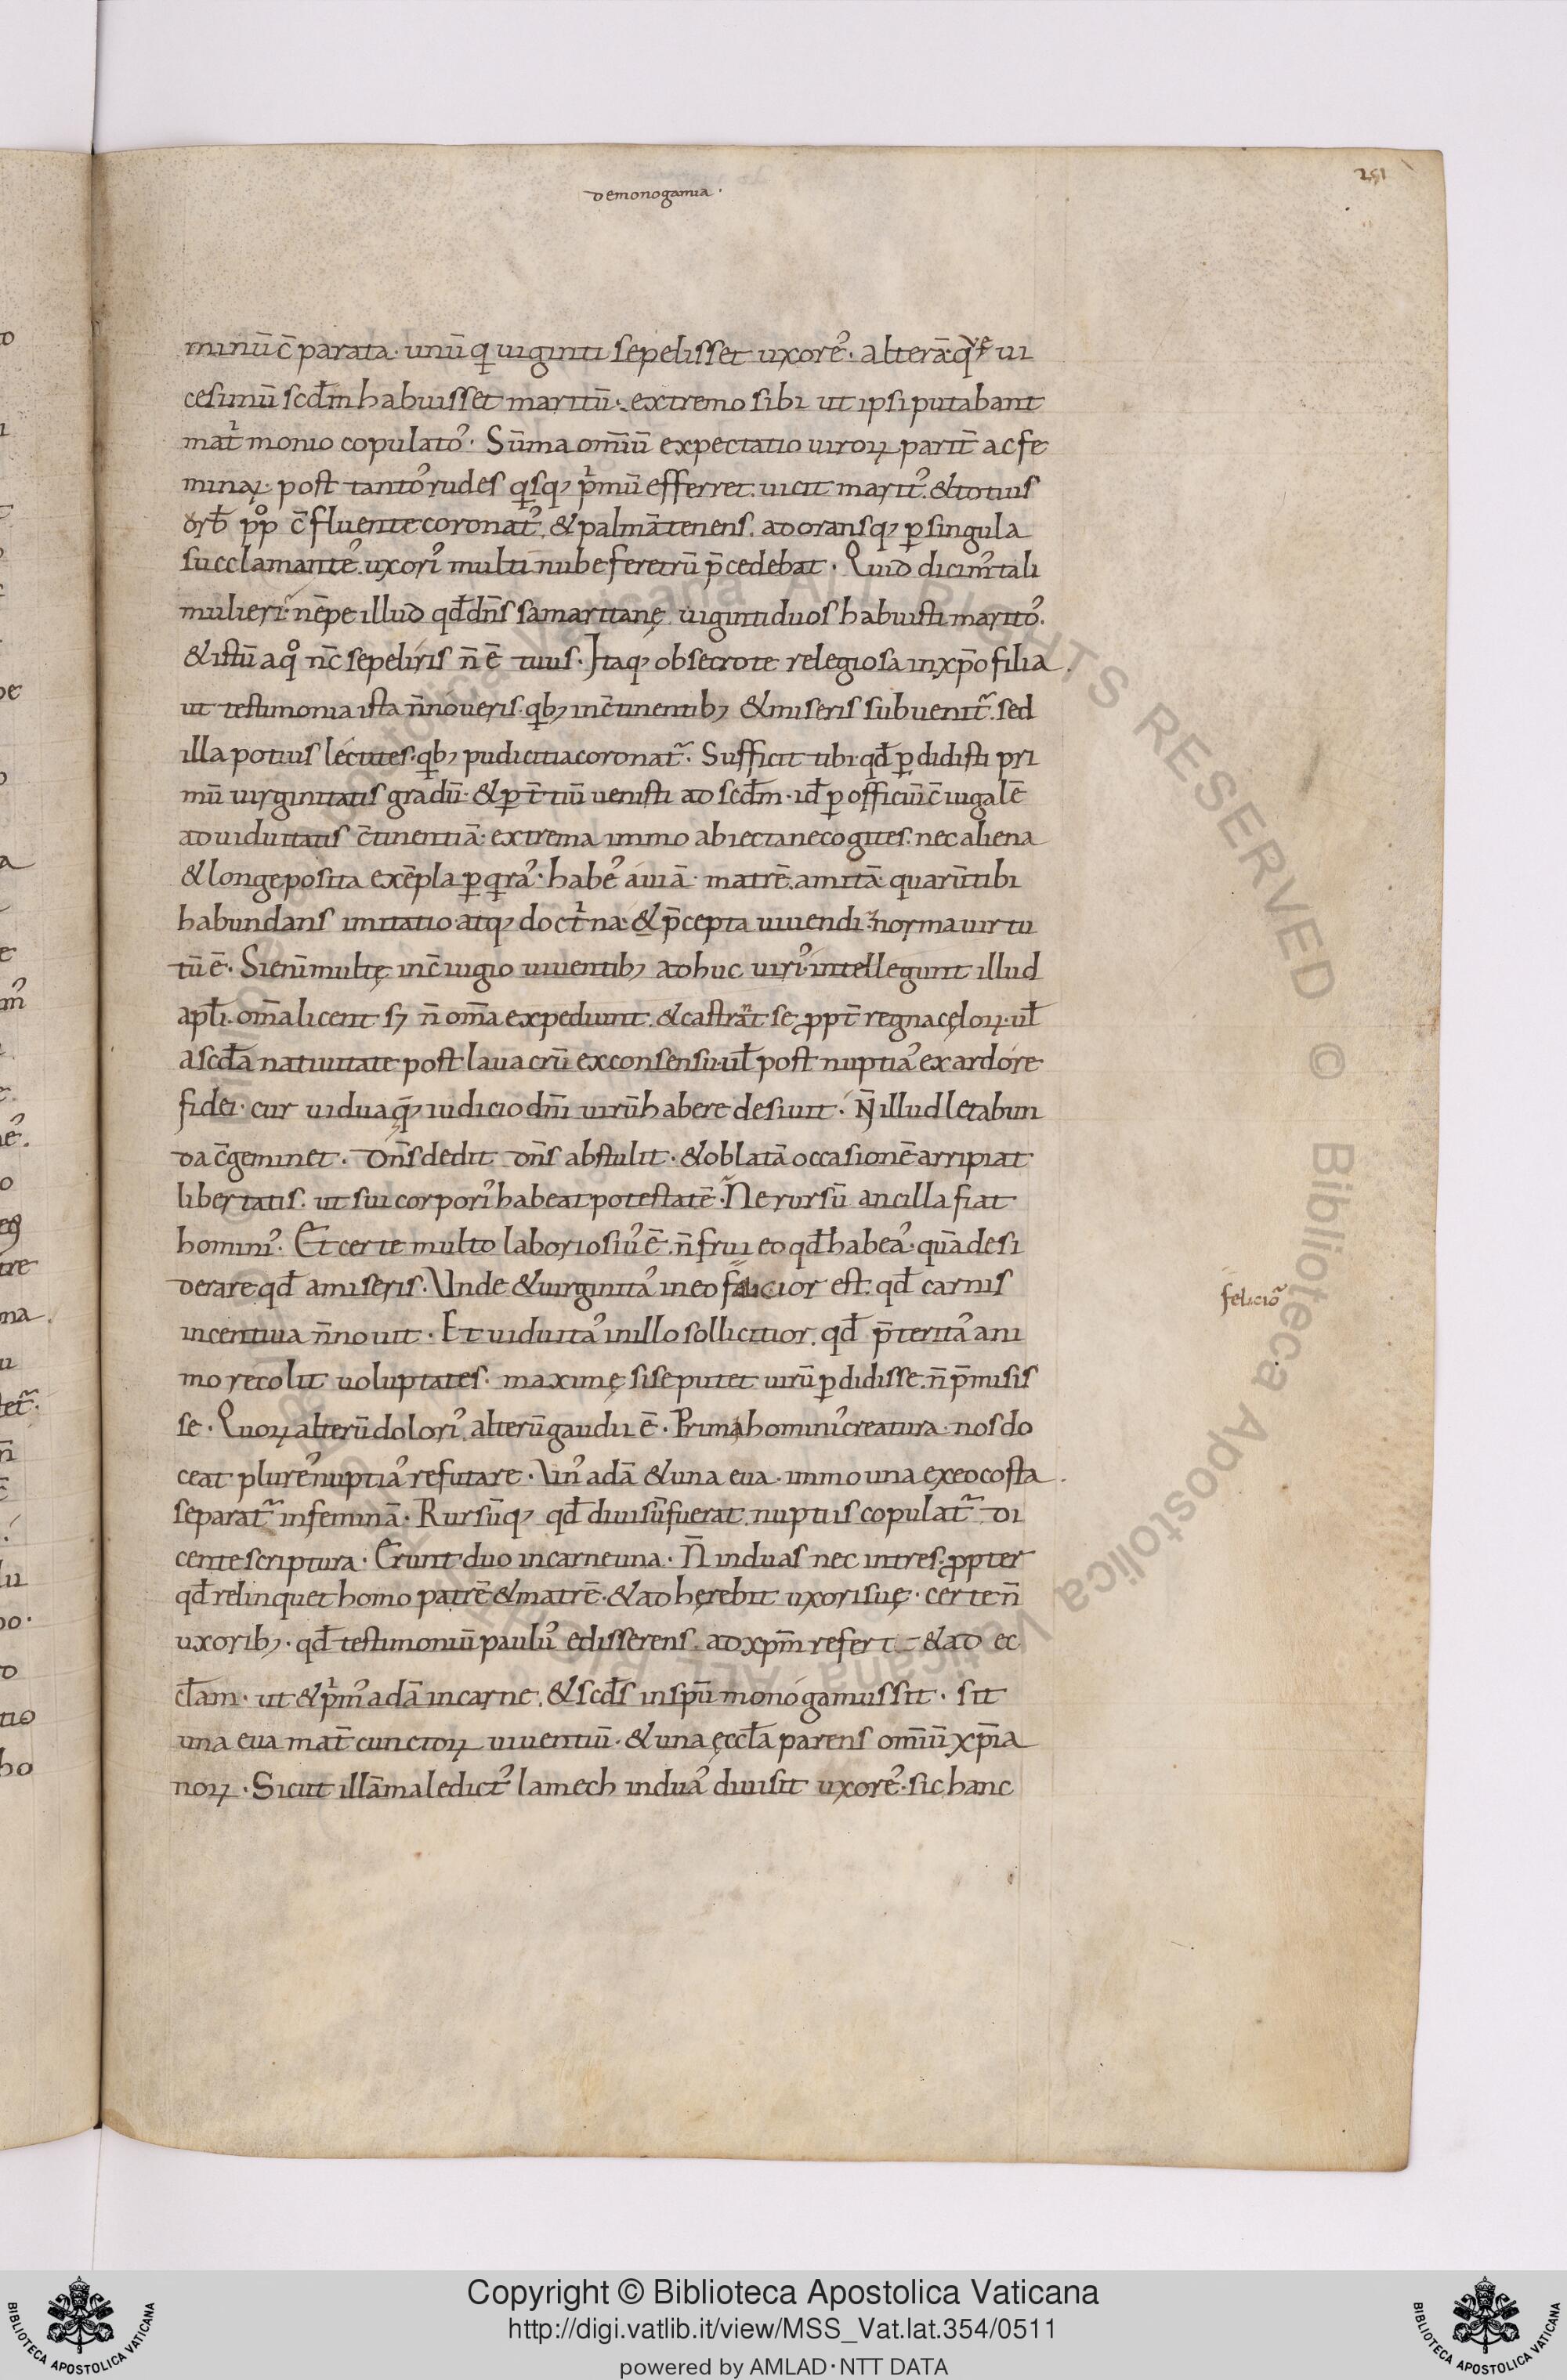 demonogamia·
251
minū c̄parata· unū q uiginti sepelisset uxore᾿· alterā· quȩ ui
cesimū scd̄m habuisset maritū· extremo sibi ut ipsi putabant
mat᾿monio copulato᾿· Sūma om̄iū expectatio uiroꝝ parit̄ ac fe
minaꝝ· post tanto᾿ rudes qisq; p᾿mū efferret· uicit marit᾿· & totius
orƀ pp̊ c̄fluente coronat᾿· & palmā tenens· adoransq; ꝑ singula
succlamante᾿· uxori᾿ multinube feretrū p̄cedebat· Quid dicim᾿ tali
mulieri· nēpe illud qđ dn̄s samaritanę uiginti duos habuisti marito᾿·
& istū a qo nc̄ sepeliris n̄ ē tuus· Itaq; obsecro te relegiosa in xp̄o filia·
ut testimonia ista n̄ noueris· qib; inc̄tinentib; & miseris subuenit᷑· sed
illa potius lectites· qib; pudicitia coronat᷑· Sufficit tibi qđ ꝑdidisti pri
mū uirginitatis gradū· & ꝑ t̄tiū uenisti ad scd̄m· iđ ꝑ officiū c̄iugalē
ad uiduitatis c̄tinentiā· extrema immo abiecta ne cogites· nec aliena
& longe posita exēpla ꝑqira᾿· habe᾿ auiā· matrē· amitā· quarū tibi
habundans imitatio atq; doct᾿na· & p̄cepta uiuendi· norma uirtu
tū ē· Si eni multę in c̄iugio uiuentib; adhuc uiri᾿ intellegunt illud
apłi· om̄a licent s; n̄ om̄a expediunt· & castrant se ꝓpt̄ regna cęloꝝ· uł
a scđa natiuitate post lauacrū ex consensu· uł post nuptia᾿ ex ardore
fidei· cur uidua q̄ iudicio dn̄i uirū habere desiuit· N̄ illud letabun
da c̄geminet· Dn̄s dedit dn̄s abstulit· & oblatā occasionē arripiat
libertatis· ut sui corpori᾿ habeat potestatē· Ne rursū ancilla fiat
homini᾿· Et certe multo laboriosiu᾿ ē· n̄ frui eo qđ habea᾿· quā desi
derare qđ amiseris· Unde & uirginita᾿ in eo felicior est· qđ carnis
felicio᷑
incentiua n̄ nouit· Et uiduita᾿ in illo sollicitior· qđ p̄terita᾿ ani
mo recolit uoluptates· maximę si se putet uirū ꝑdidisse· n̄ p̄misis
se· Quoꝝ alterū dolori᾿· alterū gaudii ē· Prima homini᾿ creatura· nos do
ceat plure᾿ nuptia᾿ refutare· Un᾿ adā & una eua· immo una ex eo costa·
separat᷑ in feminā· Rursūq; qđ diuisū fuerat· nuptiis copulat᷑ di
cente scriptura· Erunt duo in carne una· N̄ in duas nec in tres· ꝓpter
qđ relinquet homo patrē & matrē· & adhęrebit uxori suę· certe n̄
uxorib;· qđ testimoniū paulu᾿ edisserens· ad xp̄m refert & ad ec
cłam· ut & p᾿m᾿ adā in carne· & scđs in spū monogamus sit· sit
una eua mat̄ cunctoꝝ uiuentiū· & una ęccła parens om̄iū xp̄ia
noꝝ· Sicut illā maledict᾿ lamech in dua᾿ diuisit uxore᾿· sic hanc
Copyright © Biblioteca Apostolica Vaticana
http://digi.vatlib.it/view/MSS_Vat.lat.354/0511
powered by AMLAD·NTT DATA
BIBLIOTECA APOSTOLICA VATICANA
BIBLIOTECA APOSTOLICA VATICANA